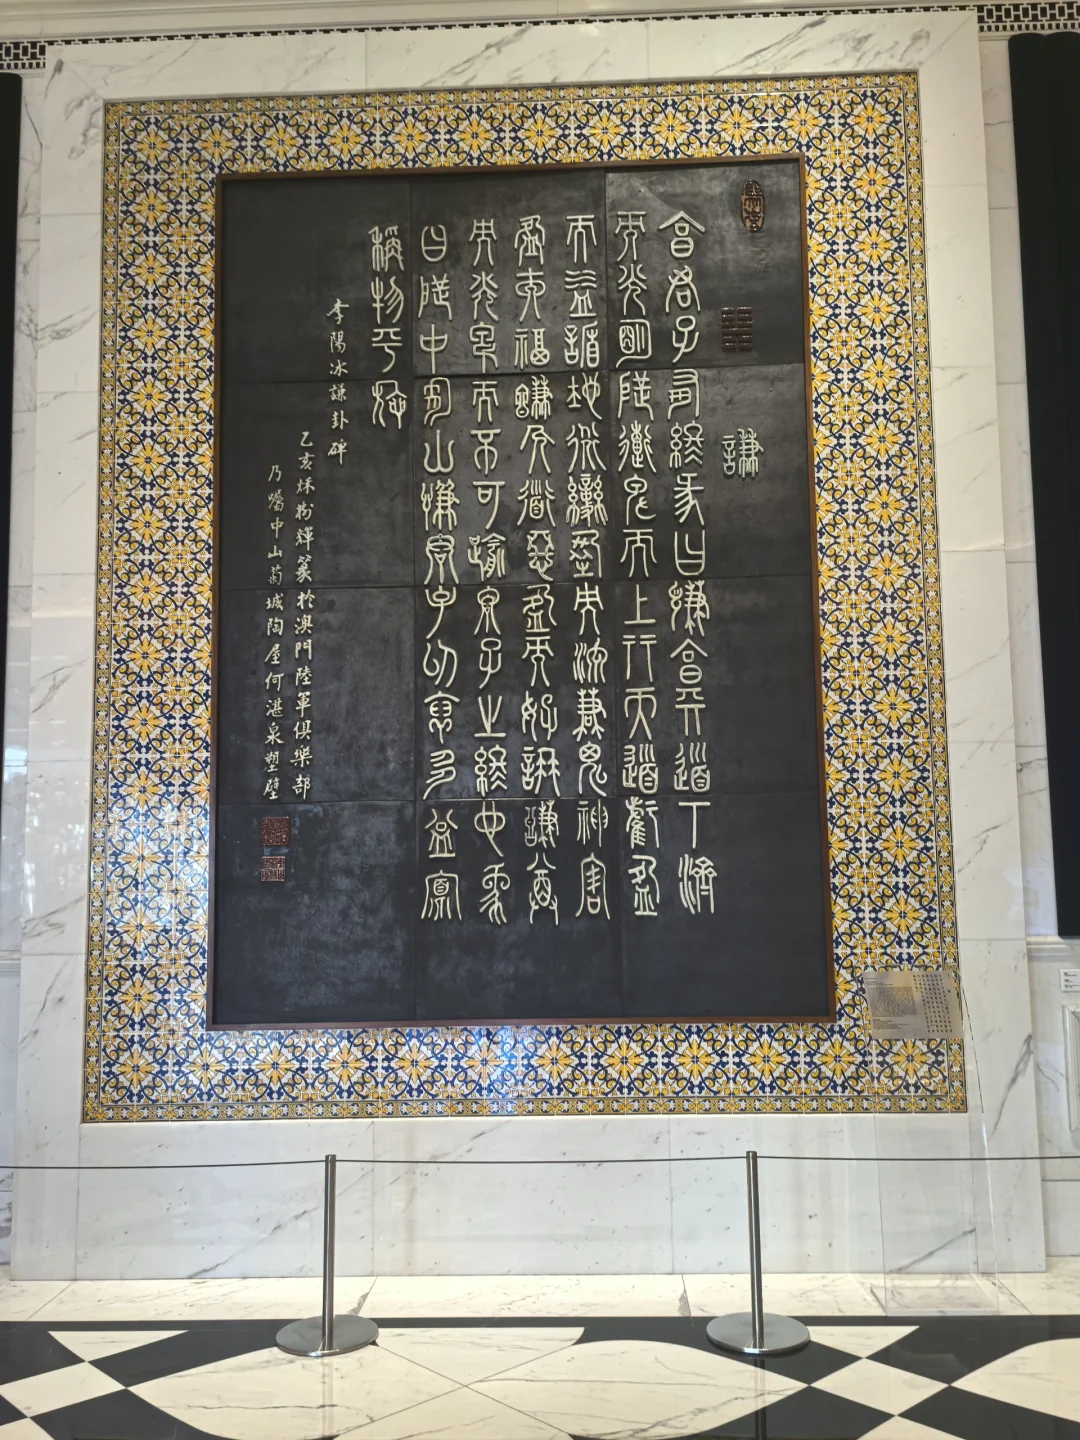 謙
亨君子有終彖曰謙亨天道下濟
而光明地道卑而上行天道虧盈
而益謙地道變盈而流謙鬼神害
盈而福謙人道惡盈而好謙謙尊
而光卑而不可踰君子之終也象
曰地中有山謙君子以裒多益寡
稱物平施
李陽冰謙卦碑
乙亥秌樹輝篆於澳門陸軍俱樂部
乃囑中山菊城陶屋何湛泉塑壁